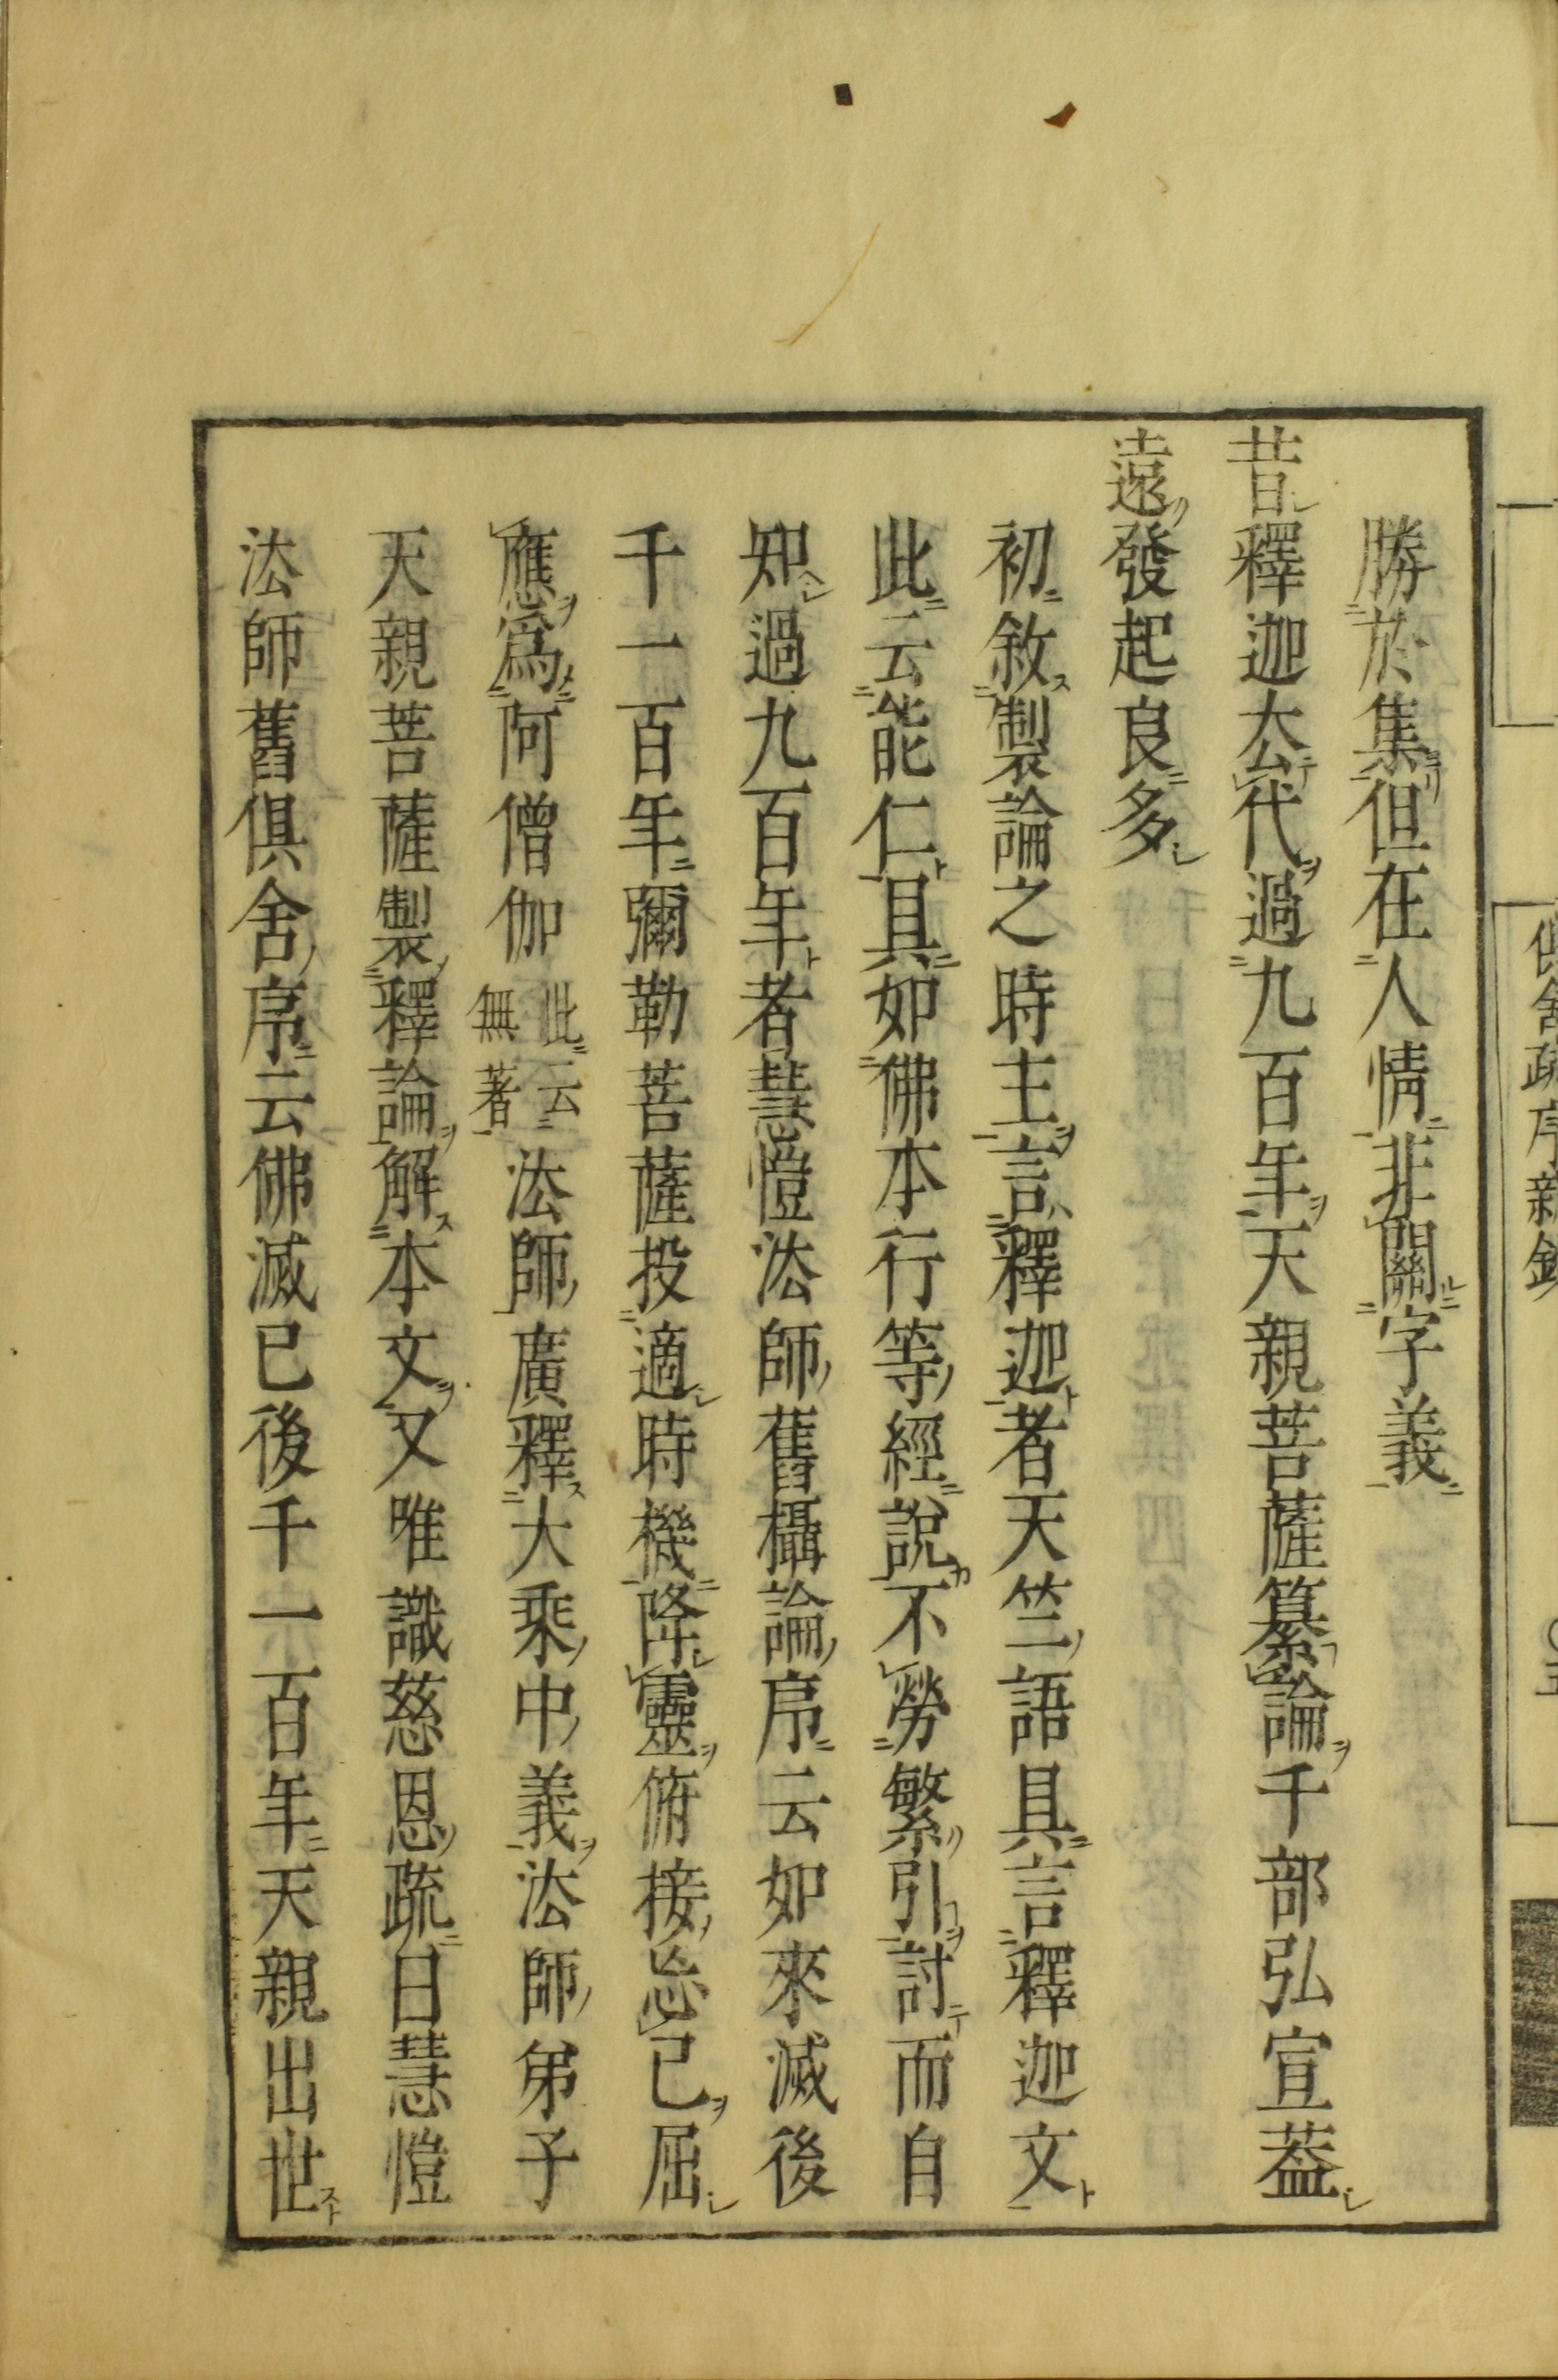 勝於集但在人情非關字義
昔釋迦厺代過九百年天親菩薩纂論千部弘宣葢
遠發起良多
初敘製論之時主言釋迦者天竺語具言釋迦文
此云能仁具如佛本行等經說不勞繁引討而自
知過九百年者慧愷法師舊攝論序云如來滅後
千一百年彌勒菩薩投適時機降靈俯接忘已屈
應爲阿僧伽此云無著法師廣釋大乘中義法師弟子
天親菩薩製釋論解本文又唯識慈恩疏曰慧愷
法師舊俱舍序云佛滅已後千一百年天親出世